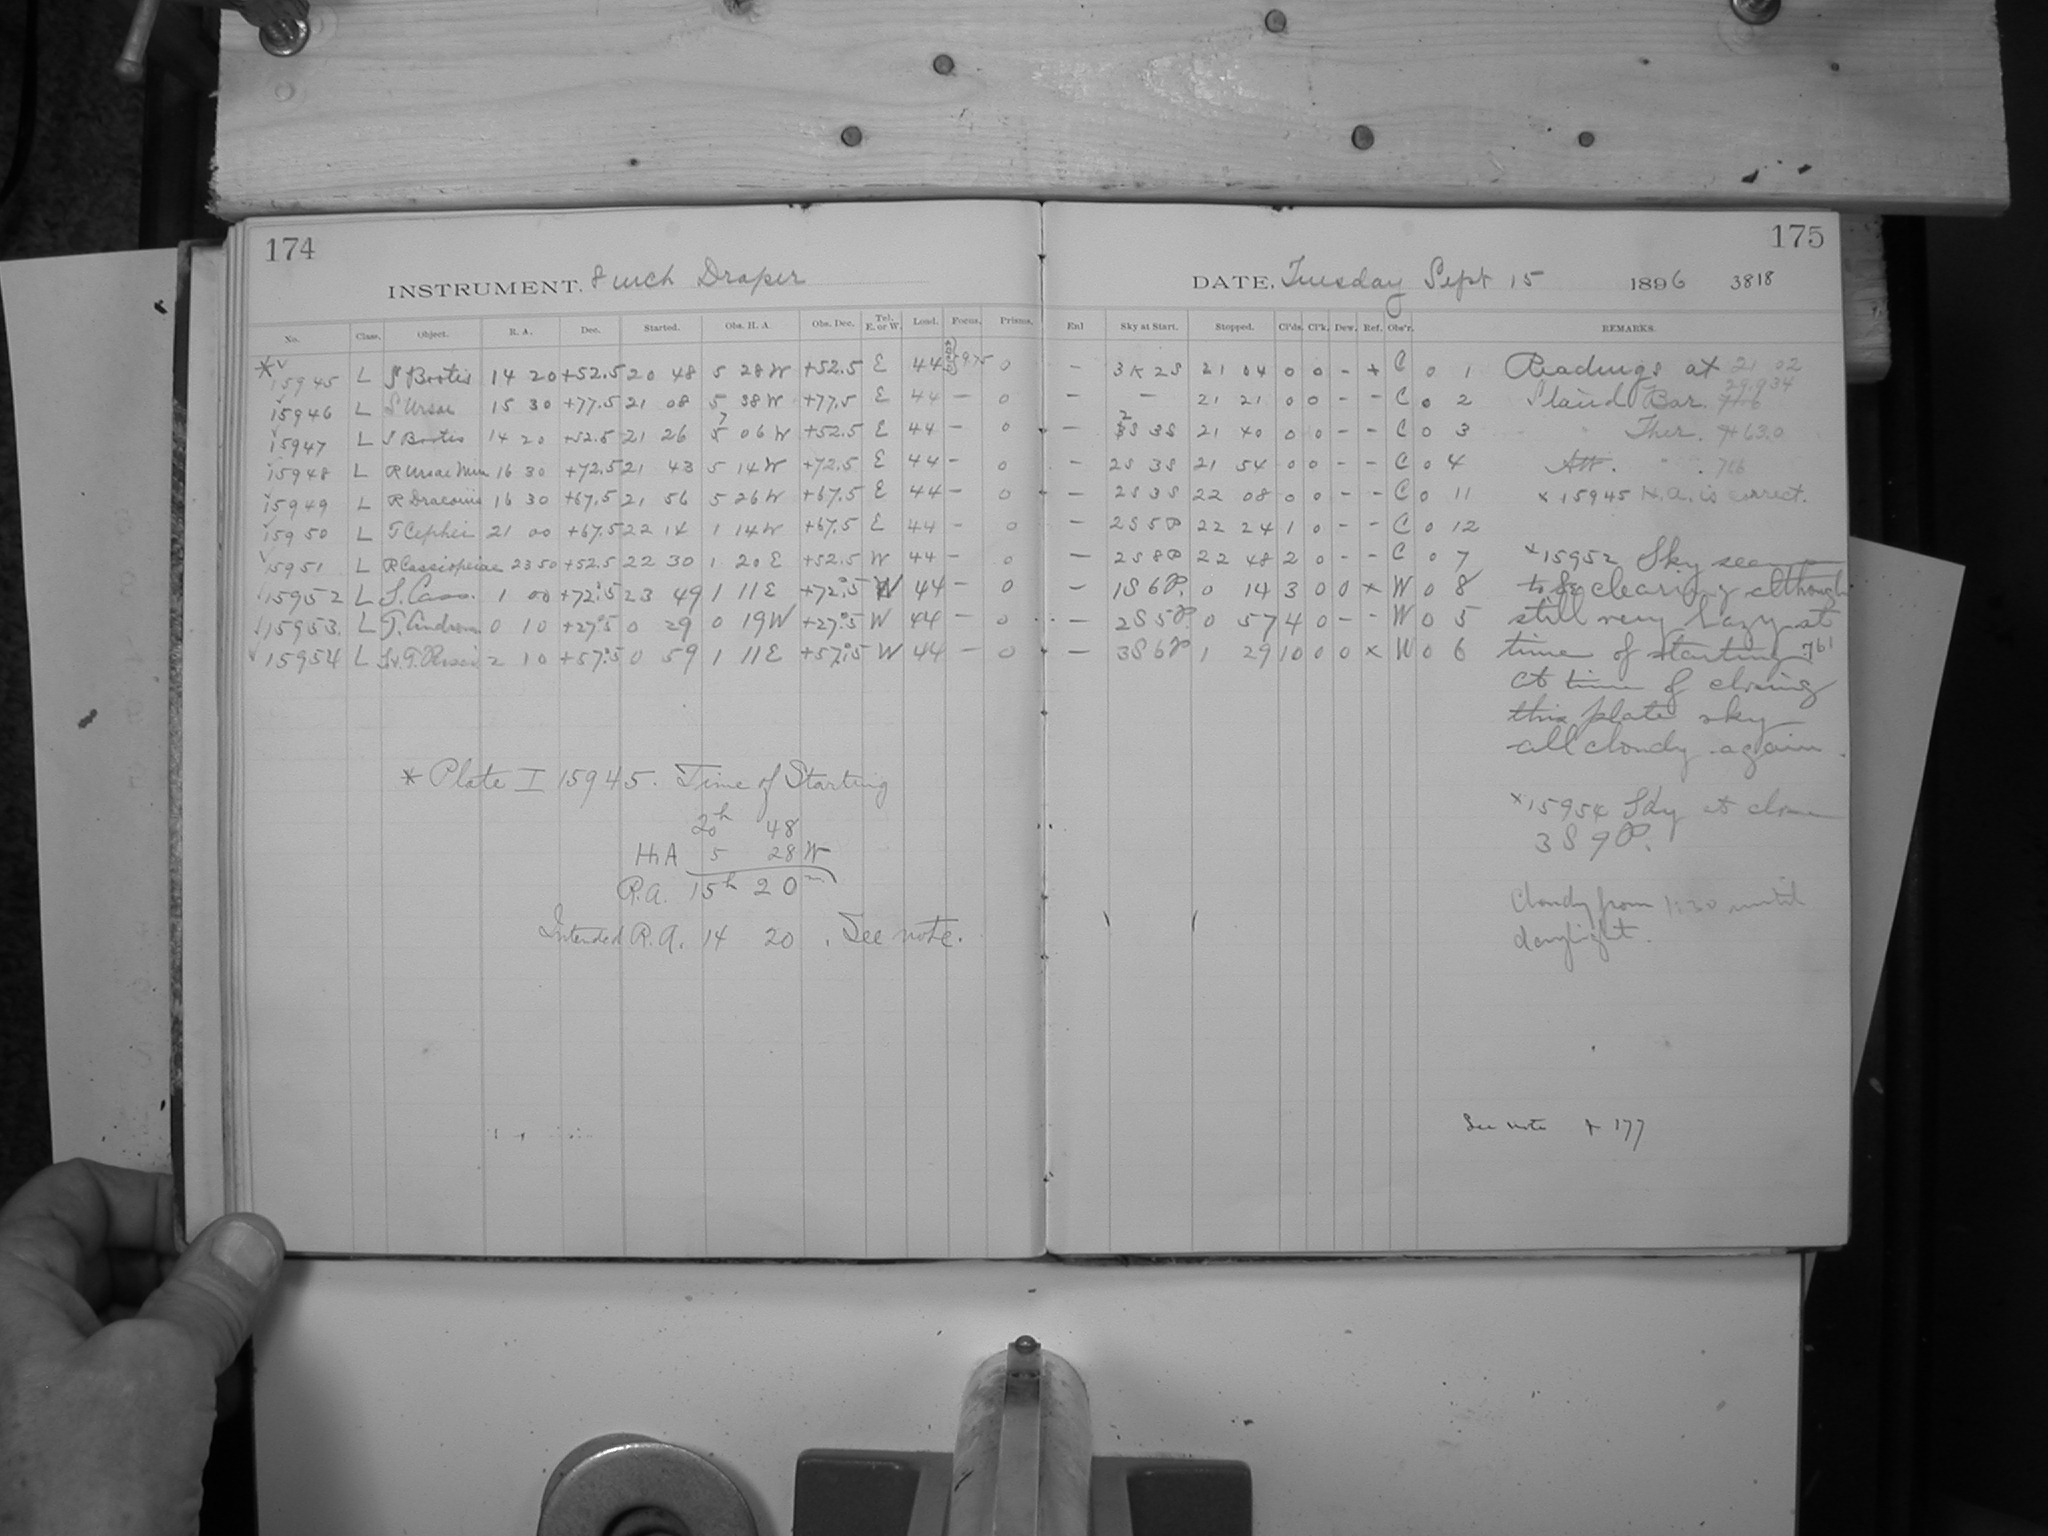 174
INSTRUMENT. 8 inch Draper
No. Class. Object. R. A. Dec. Started. Obs. H. A. Obs. Dec. Tel. E. or W. Lond. Focus. Prisms.
* 15945 L S Bootis 14 20 +52.5 20 48 5 28 W +52.5 E 44 9.75 0
15946 L S Ursae 15 30 +77.5 21 08 5 38 W +77.5 E 44 — 0
15947 L S Bootis 14 20 +52.5 21 26 7 06 W +52.5 E 44 — 0
15948 L R Ursae Min 16 30 +72.5 21 43 5 14 W +72.5 E 44 — 0
15949 L R Draconis 16 30 +67.5 21 56 5 26 W +67.5 E 44 — 0
15950 L T Cephei 21 00 +67.5 22 14 1 14 W +67.5 E 44 — 0
15951 L R Cassiopeiae 23 50 +52.5 22 30 1 20 E +52.5 W 44 — 0
15952 L S. Cass. 1 00 +72°.5 23 49 1 11 E +72°.5 W 44 — 0
15953 L T. Androm 0 10 +27°.5 0 29 0 19 W +27°.5 W 44 — 0
15954 L S. & T. Persei 2 10 +57°.5 0 59 1 11 E +57°.5 W 44 — 0
* Plate I 15945. Time of Starting
20h 48
H.A 5 28 W
R.A. 15h 20m
Intended R.A. 14 20 . See note.
175
DATE, Tuesday Sept 15 1896 3818
Enl Sky at Start. Stopped. Cl'ds. Cl'k. Dew. Ref. Obs'r. REMARKS.
— 3K 2S 21 04 0 0 - + C 0 1
— — 21 21 0 0 - - C 0 2
— 2S 3S 21 40 0 0 - - C 0 3
— 2S 3S 21 54 0 0 - - C 0 4
— 2S 3S 22 08 0 0 - - C 0 11
— 2S 5P 22 24 1 0 - - C 0 12
— 2S 8P 22 48 2 0 - - C 0 7
— 1S 6P. 0 14 3 0 0 x W 0 8
— 2S 5P. 0 57 4 0 - - W 0 5
— 3S 6P 1 29 10 0 0 x W 0 6
Readings at 21 02
Stand Bar. 29.934
Ther. 63.0
Att. " " . 766
x 15945 H.A. is correct.
x 15952 Sky seems
to be clearing although
still very hazy at
time of starting 761
at time of closing
this plate sky
all cloudy again.
x 15954 Sky at close
3S 9P.
Cloudy from 1:30 until
daylight.
See note p 177